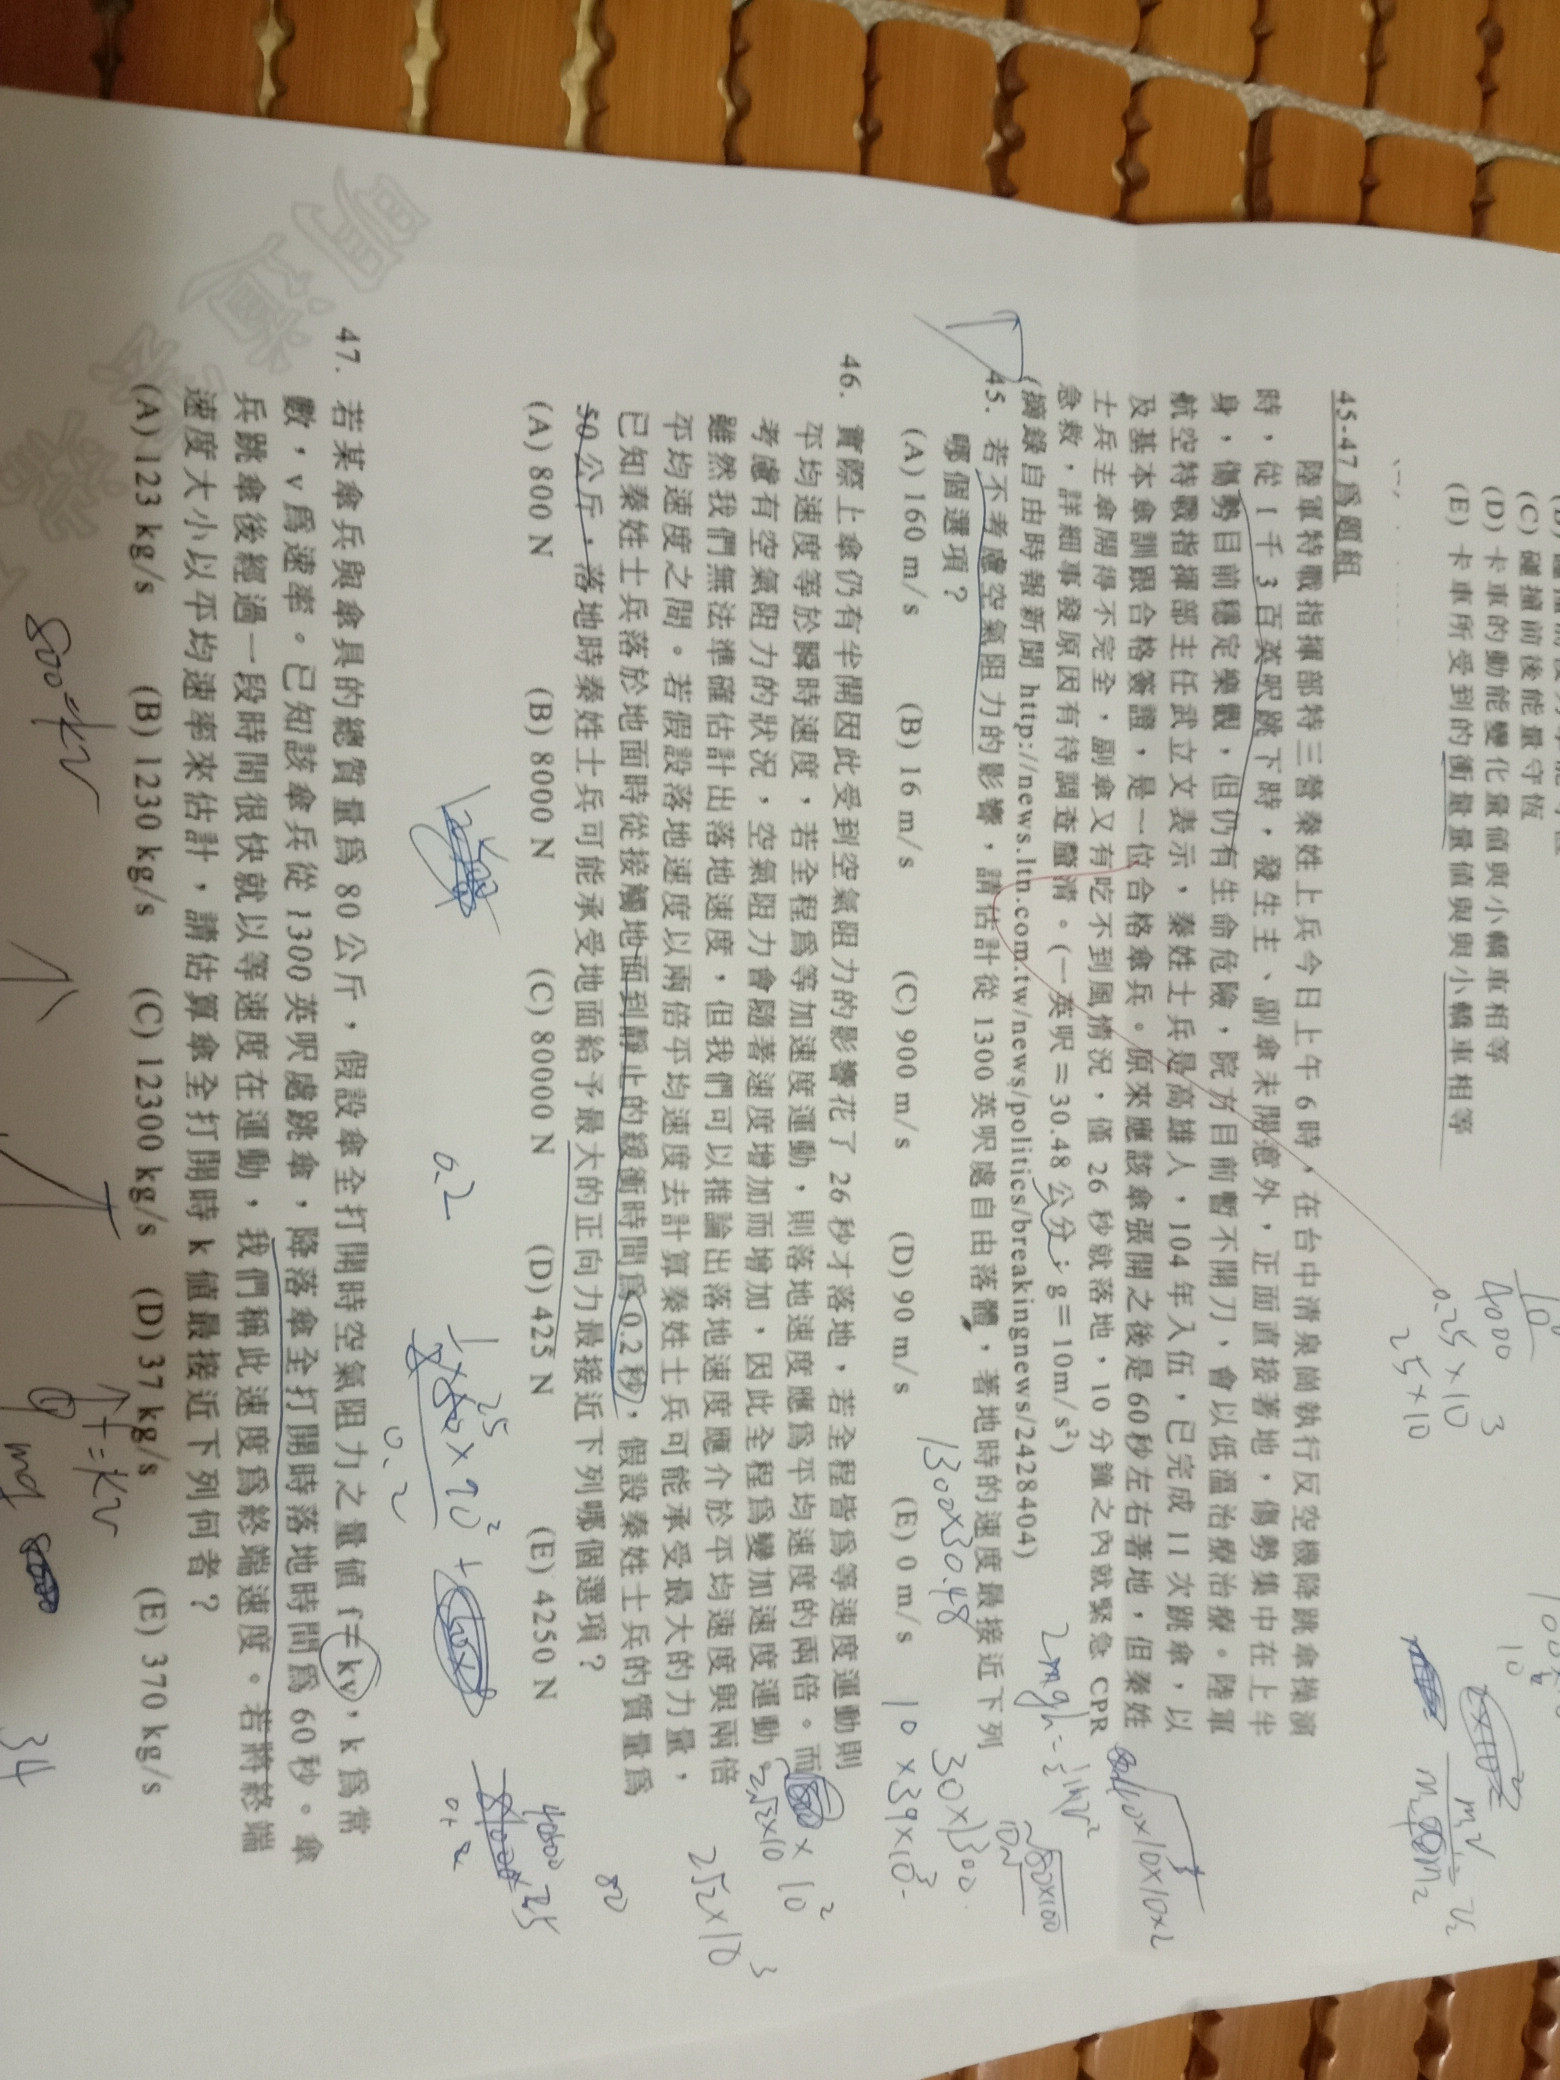 (C) 碰撞前後能量守恆
(D) 卡車的動能變化量值與小轎車相等
(E) 卡車所受到的衝量量值與與小轎車相等
45-47 為題組
陸軍特戰指揮部特三營秦姓上兵今日上午 6 時，在台中清泉崗執行反空機降跳傘操演
時，從 1 千 3 百英呎跳下時，發生主、副傘未開意外，正面直接著地，傷勢集中在上半
身，傷勢目前穩定樂觀，但仍有生命危險，院方目前暫不開刀、會以低溫治療治療。陸軍
航空特戰指揮部主任武立文表示，秦姓士兵是高雄人，104 年入伍，已完成 11 次跳傘，以
及基本傘訓跟合格簽證，是一位合格傘兵。原來應該傘張開之後是 60 秒左右著地，但秦姓
士兵主傘開得不完全，副傘又有吃不到風情況，僅 26 秒就落地，10 分鐘之內就緊急 CPR
急救，詳細事發原因有待調查釐清。(一英呎＝30.48 公分；g＝10m/s²)
(摘錄自由時報新聞 http://news.ltn.com.tw/news/politics/breakingnews/2428404)
45. 若不考慮空氣阻力的影響，請估計從 1300 英呎處自由落體，著地時的速度最接近下列
哪個選項？
(A) 160 m/s (B) 16 m/s (C) 900 m/s (D) 90 m/s (E) 0 m/s
46. 實際上傘仍有半開因此受到空氣阻力的影響花了 26 秒才落地，若全程皆為等速度運動則
平均速度等於瞬時速度，若全程為等加速度運動，則落地速度應為平均速度的兩倍。而
考慮有空氣阻力的狀況，空氣阻力會隨著速度增加而增加，因此全程為變加速度運動。
雖然我們無法準確估計出落地速度，但我們可以推論出落地速度應介於平均速度與兩倍
平均速度之間。若假設落地速度以兩倍平均速度去計算秦姓士兵可能承受最大的力量，
已知秦姓士兵落於地面時從接觸地面到靜止的緩衝時間為 0.2 秒，假設秦姓士兵的質量為
50 公斤，落地時秦姓士兵可能承受地面給予最大的正向力最接近下列哪個選項？
(A) 800 N (B) 8000 N (C) 80000 N (D) 425 N (E) 4250 N
47. 若某傘兵與傘具的總質量為 80 公斤，假設傘全打開時空氣阻力之量值 f＝kv，k 為常
數，v 為速率。已知該傘兵從 1300 英呎處跳傘，降落傘全打開時落地時間為 60 秒。傘
兵跳傘後經過一段時間很快就以等速度在運動，我們稱此速度為終端速度。若將終端
速度大小以平均速率來估計，請估算傘全打開時 k 值最接近下列何者？
(A) 123 kg/s (B) 1230 kg/s (C) 12300 kg/s (D) 37 kg/s (E) 370 kg/s
4000
0.25×10³
25×10
1300×30.48
30×1300
10×39×10³
2mgh=½mv²
2√2×10³
0.2
80
800=kv
f=kv
mg
34
明道